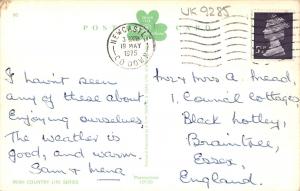 90
POST CARD
UK9285
NEWCASTLE
19 MAY
1975
CO. DOWN
I havn't seen
any of these about
Enjoying ourselves
The weather is
good, and warm.
Sam & Irene
Mr & Mrs A. Mead,
1. Council Cottages,
Black Notley,
Braintree,
Essex,
England.
IRISH COUNTRY LIFE SERIES